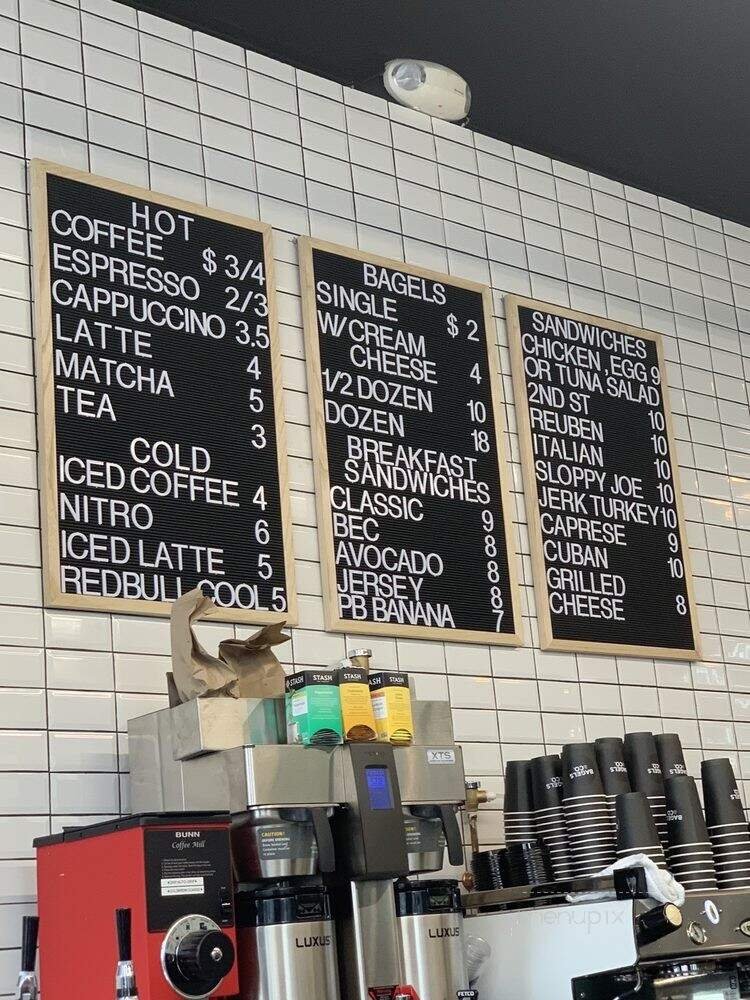 HOT
COFFEE $ 3/4
ESPRESSO 2/3
CAPPUCCINO 3.5
LATTE 4
MATCHA 5
TEA 3
COLD
ICED COFFEE 4
NITRO 6
ICED LATTE 5
REDBULL COOL 5
BAGELS
SINGLE $ 2
W/ CREAM
CHEESE 4
1/2 DOZEN 10
DOZEN 18
BREAKFAST
SANDWICHES
CLASSIC 9
BEC 8
AVOCADO 8
JERSEY 8
PB BANANA 7
SANDWICHES
CHICKEN , EGG 9
OR TUNA SALAD
2ND ST 10
REUBEN 10
ITALIAN 10
SLOPPY JOE 10
JERK TURKEY 10
CAPRESE 9
CUBAN 10
GRILLED
CHEESE 8
STASH
STASH
STASH
XTS
BUNN
Coffee Mill
CAUTION!
LUXUS
LUXUS
FETCO
BAGELS
& CO.
menupix